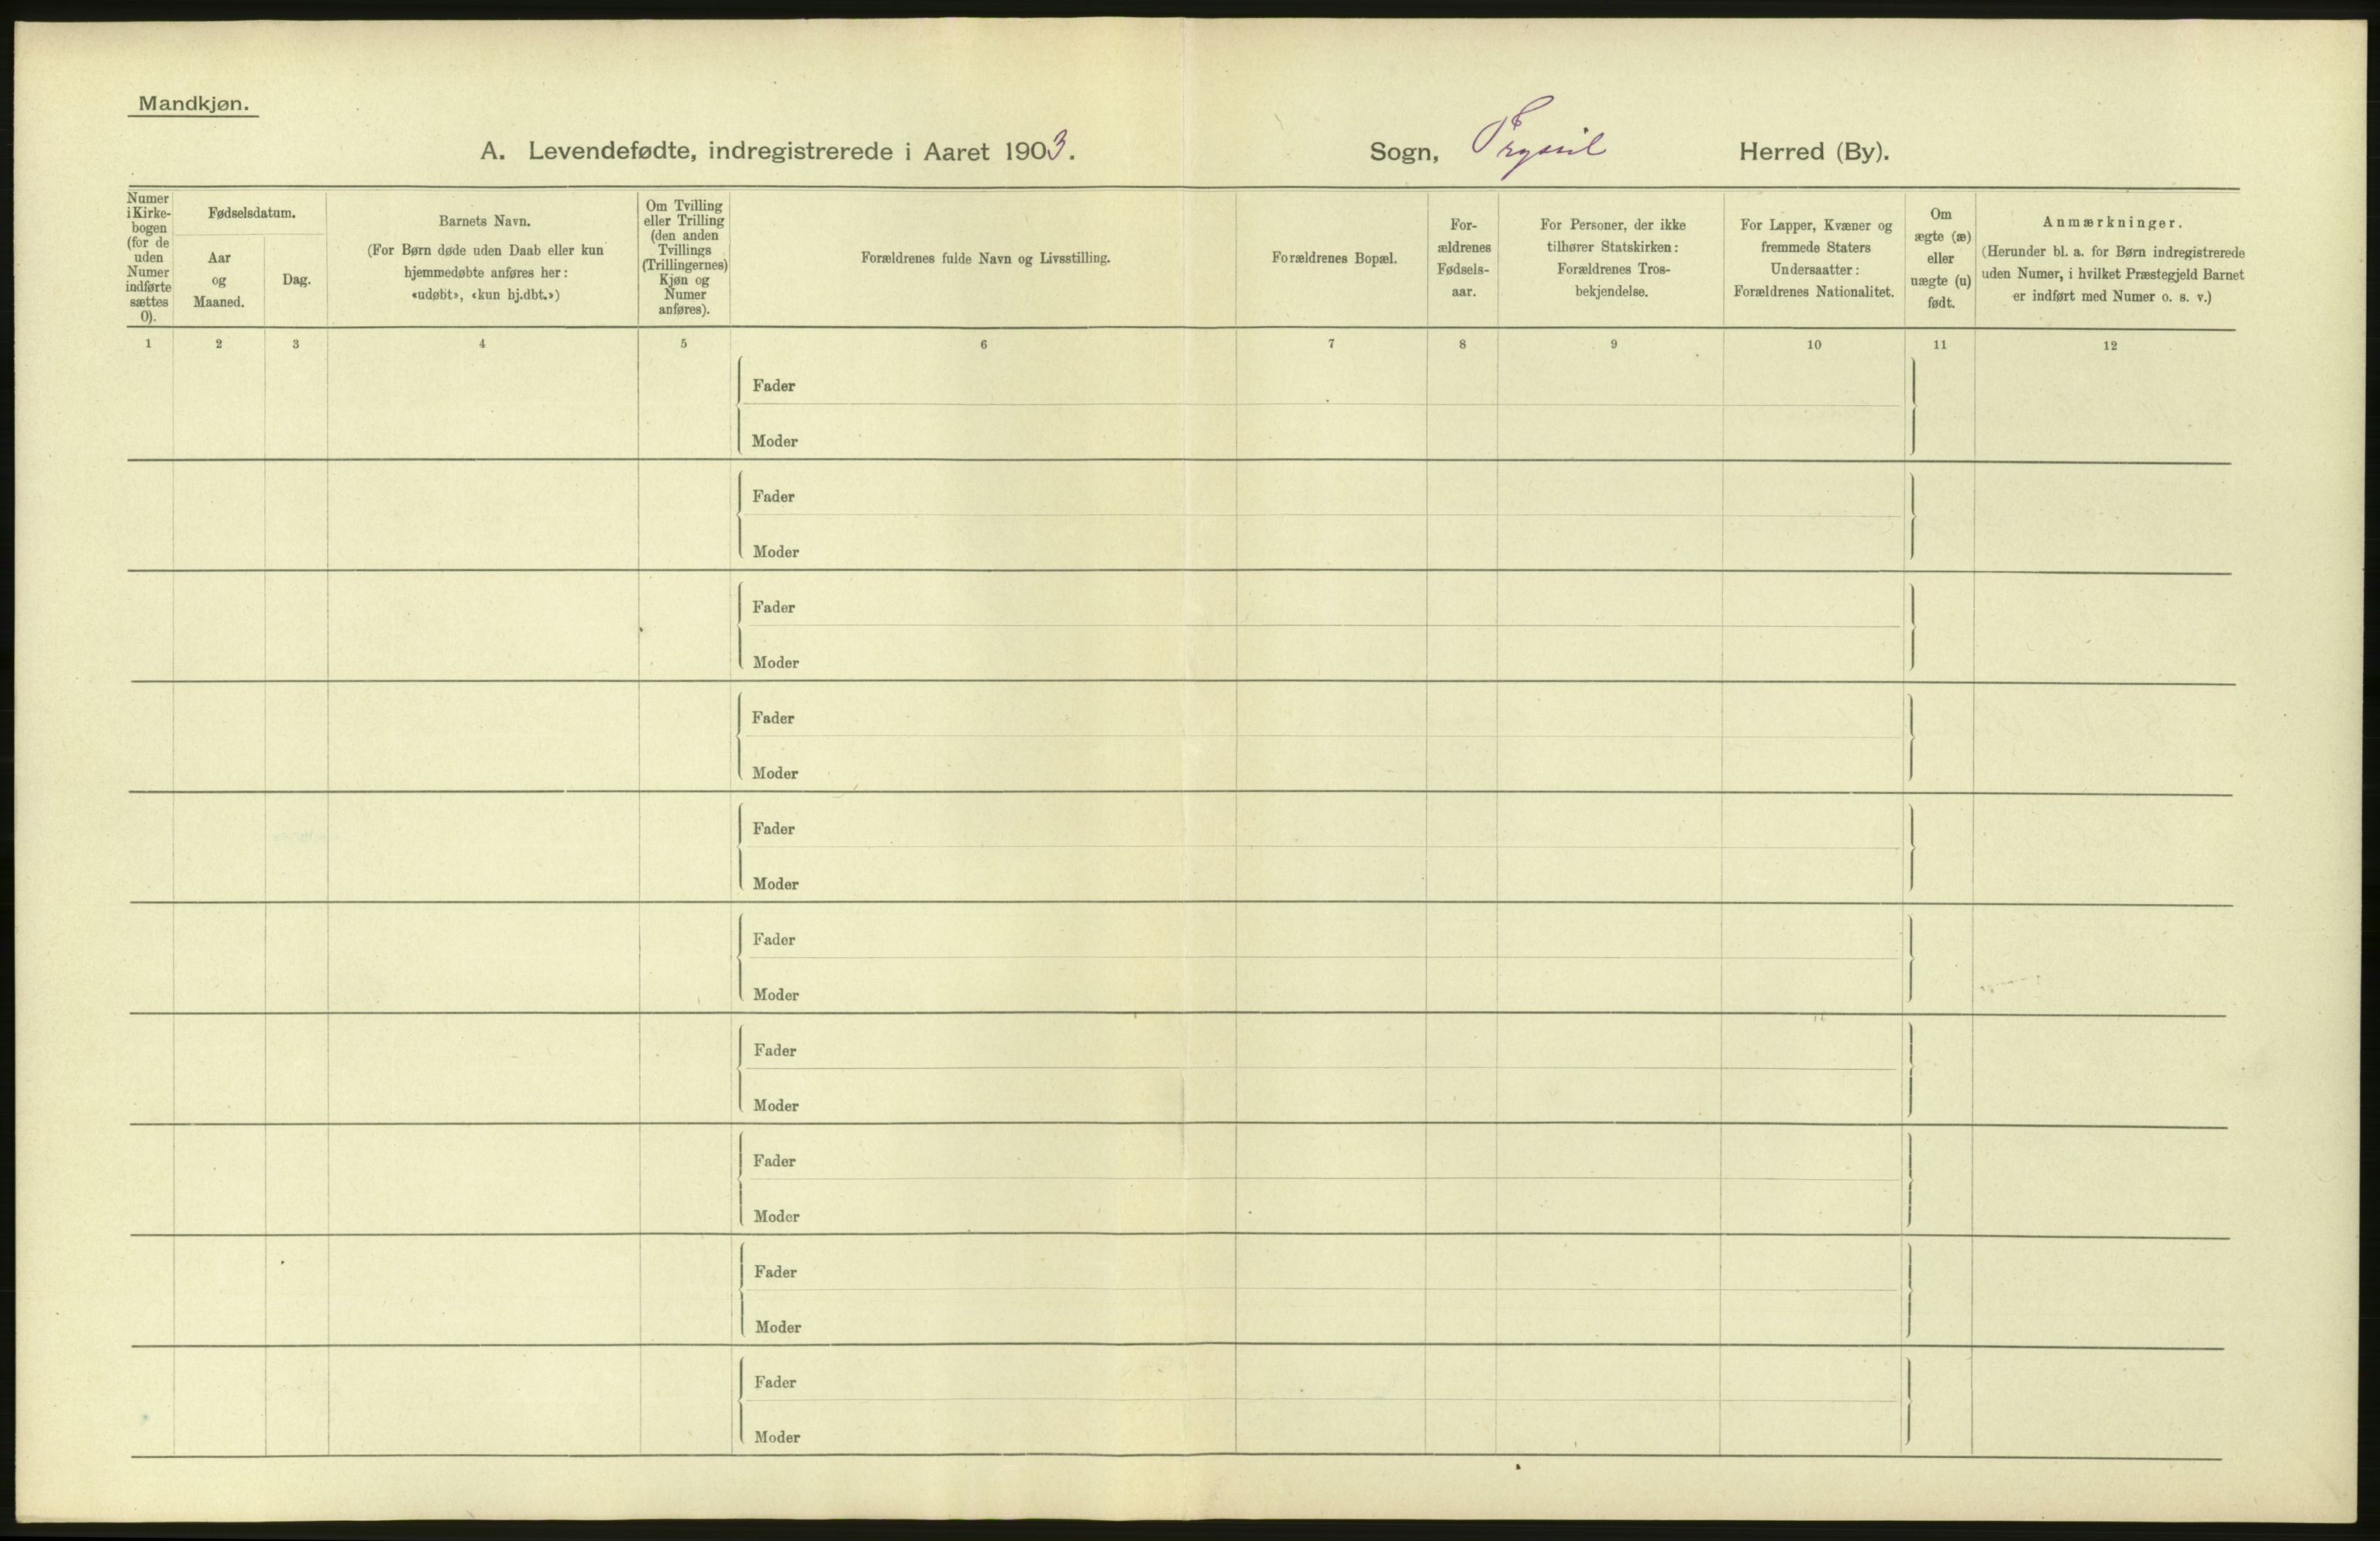 Mandkjøn.
A. Levendefødte, indregistrerede i Aaret 1903.
Sogn, Trysil Herred (By).
Numer
i Kirke-
bogen
(for de
uden
Numer
indførte
sættes
0).
Fødselsdatum.
Aar
og
Maaned.
Dag.
Barnets Navn.
(For Børn døde uden Daab eller kun
hjemmedøbte anføres her:
«udøbt», «kun hj.dbt.»)
Om Tvilling
eller Trilling
(den anden
Tvillings
(Trillingernes)
Kjøn og
Numer
anføres).
Forældrenes fulde Navn og Livsstilling.
Forældrenes Bopæl.
For-
ældrenes
Fødsels-
aar.
For Personer, der ikke
tilhører Statskirken:
Forældrenes Tros-
bekjendelse.
For Lapper, Kvæner og
fremmede Staters
Undersaatter:
Forældrenes Nationalitet.
Om
ægte (æ)
eller
uægte (u)
født.
Anmærkninger.
(Herunder bl. a. for Børn indregistrerede
uden Numer, i hvilket Præstegjeld Barnet
er indført med Numer o. s. v.)
1 2 3 4 5 6 7 8 9 10 11 12
Fader
Moder
Fader
Moder
Fader
Moder
Fader
Moder
Fader
Moder
Fader
Moder
Fader
Moder
Fader
Moder
Fader
Moder
Fader
Moder